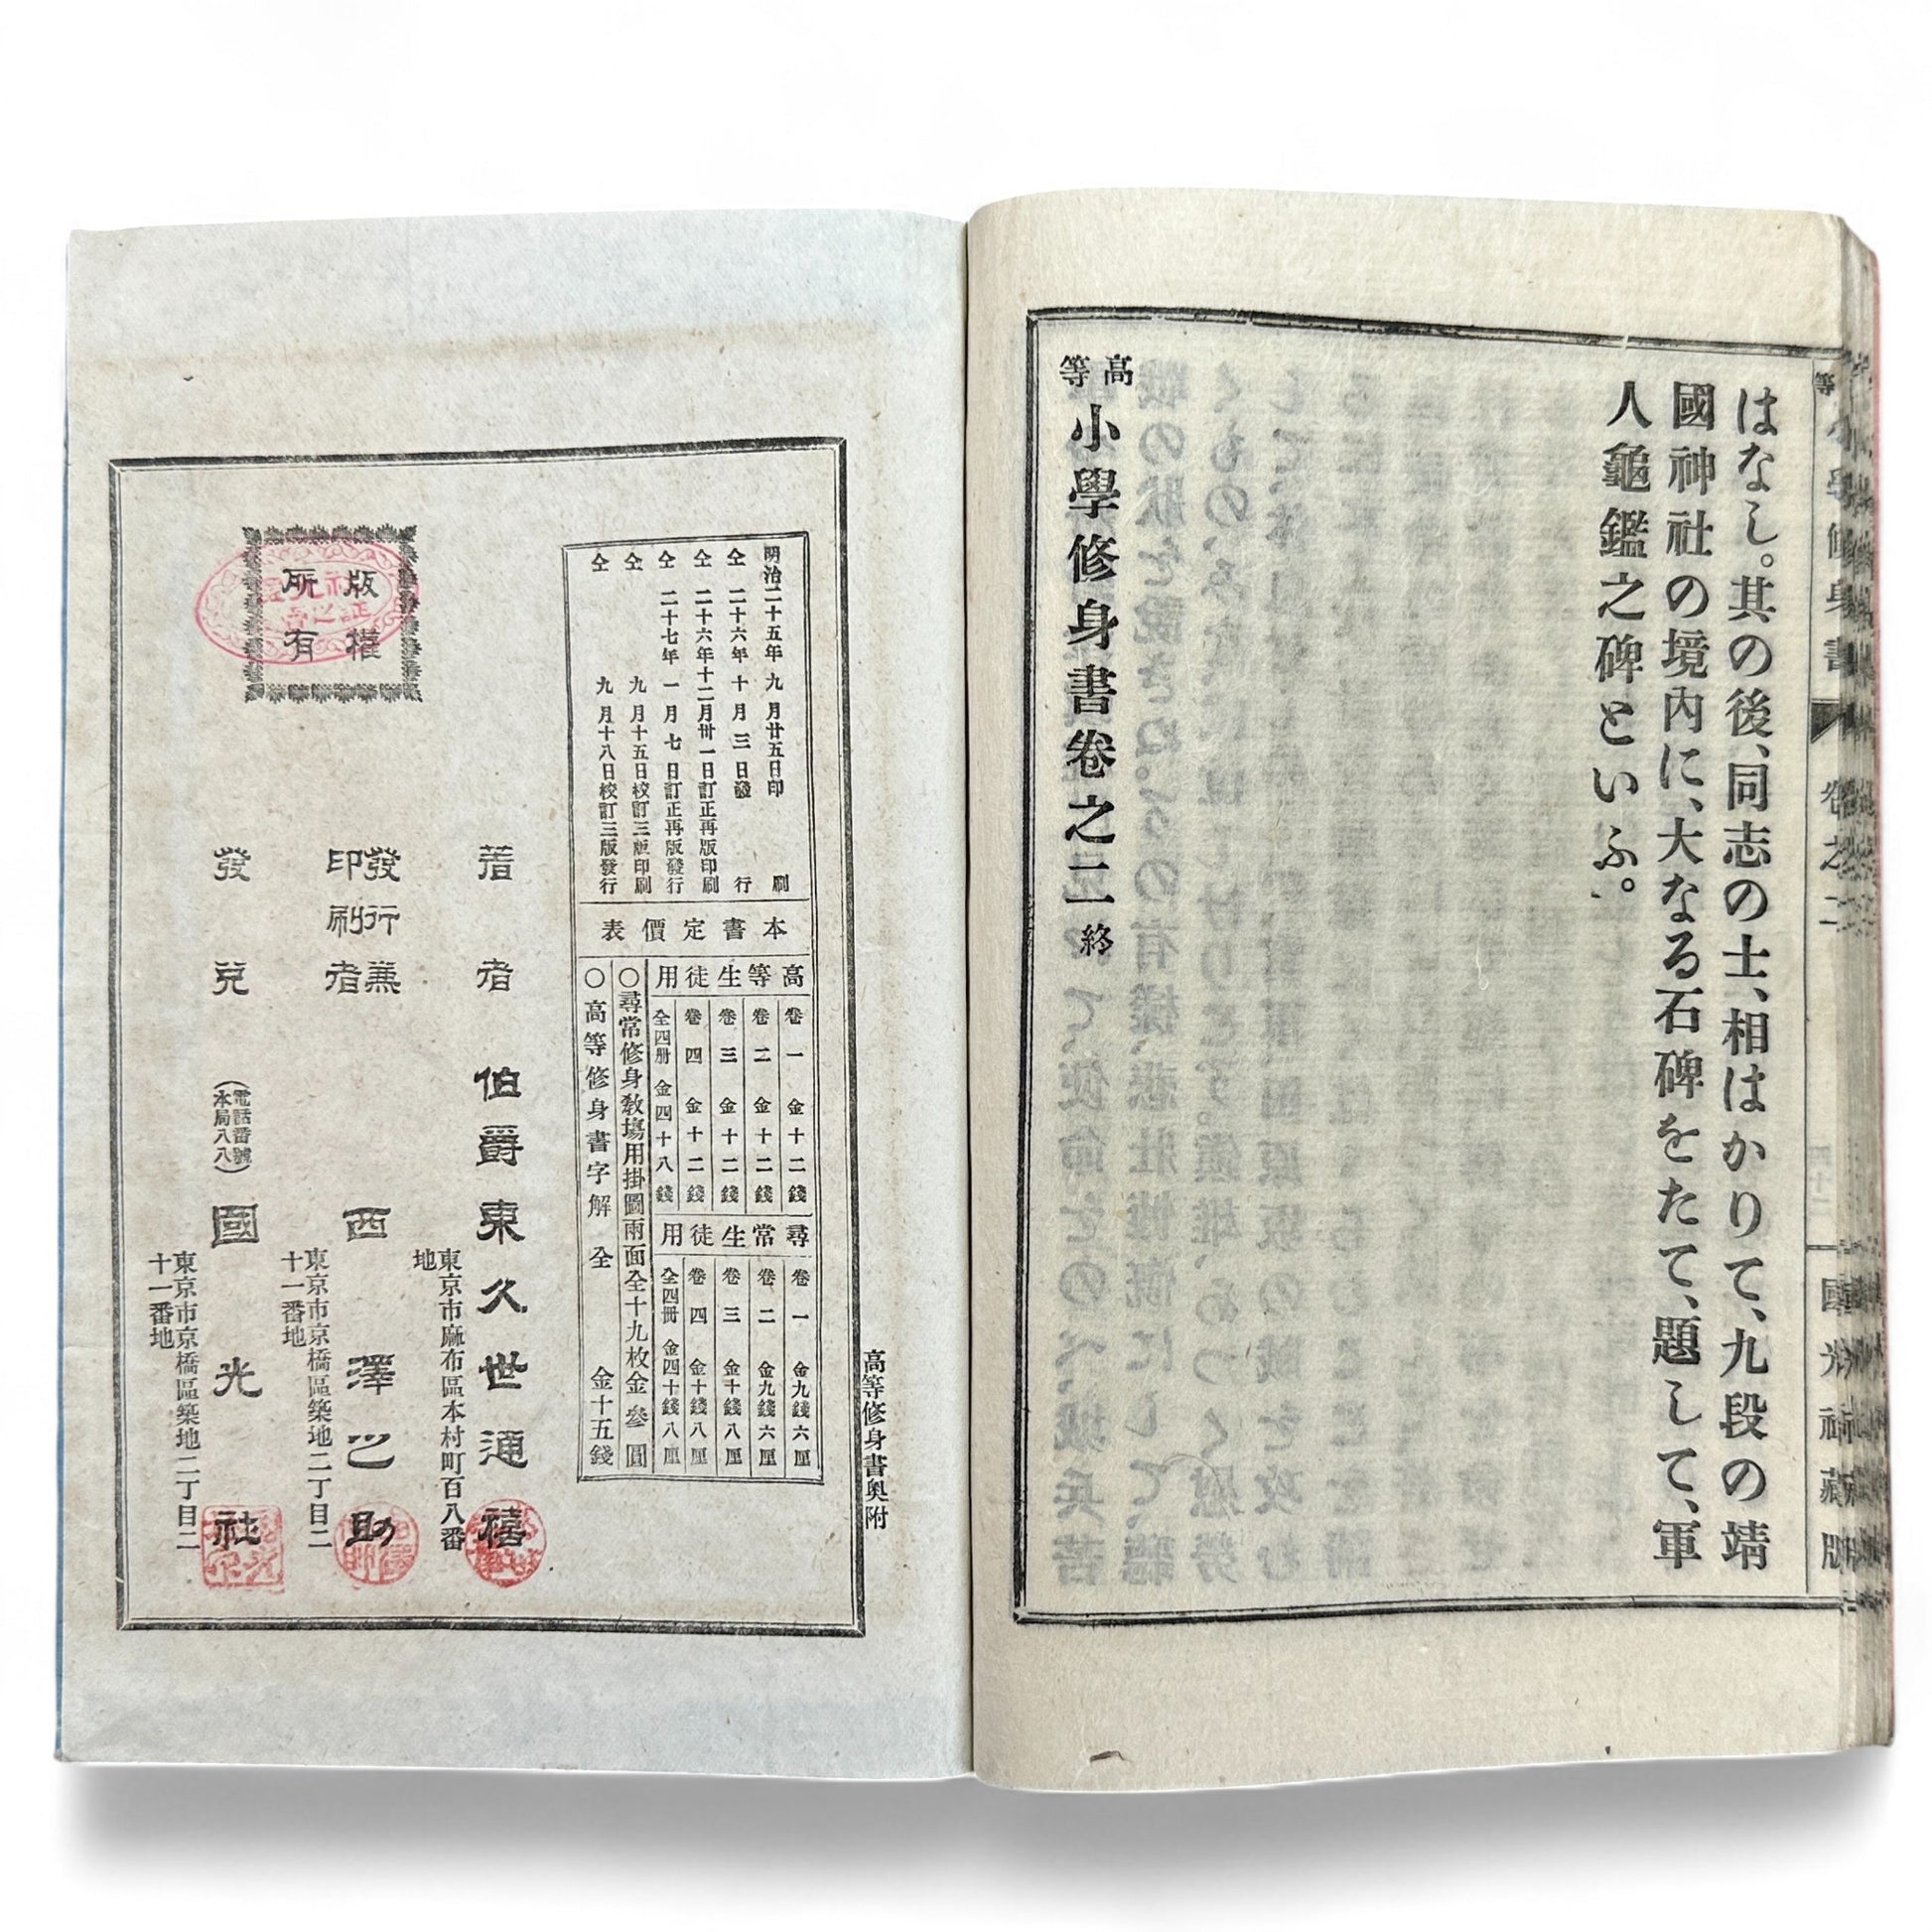 はなし。其の後、同志の士、相はかりて、九段の靖
國神社の境內に、大なる石碑をたて、題して、軍
人龜鑑之碑といふ。
高等小學修身書卷之二終
高等修身書奥附
明治二十五年九月廿五日印刷
仝 二十六年十月三日發行
仝 二十六年十二月卅一日訂正再版印刷
仝 二十七年一月七日訂正再版發行
仝 九月十五日校訂三版印刷
仝 九月十八日校訂三版發行
本書定價表
高等生徒用
卷一 金十二錢
卷二 金十二錢
卷三 金十二錢
卷四 金十二錢
全四册 金四十八錢
尋常生徒用
卷一 金九錢六厘
卷二 金九錢六厘
卷三 金十錢八厘
卷四 金十錢八厘
全四冊 金四十錢八厘
○尋常修身教塲用掛圖兩面全十九枚金參圓
○高等修身書字解 全 金十五錢
版權
所有
著者 伯爵東久世通禧
東京市麻布區本村町百八番
地
發行兼
印刷者 西澤之助
東京市京橋區築地二丁目二
十一番地
發兌 (電話番號
本局八八) 國光社
東京市京橋區築地二丁目二
十一番地